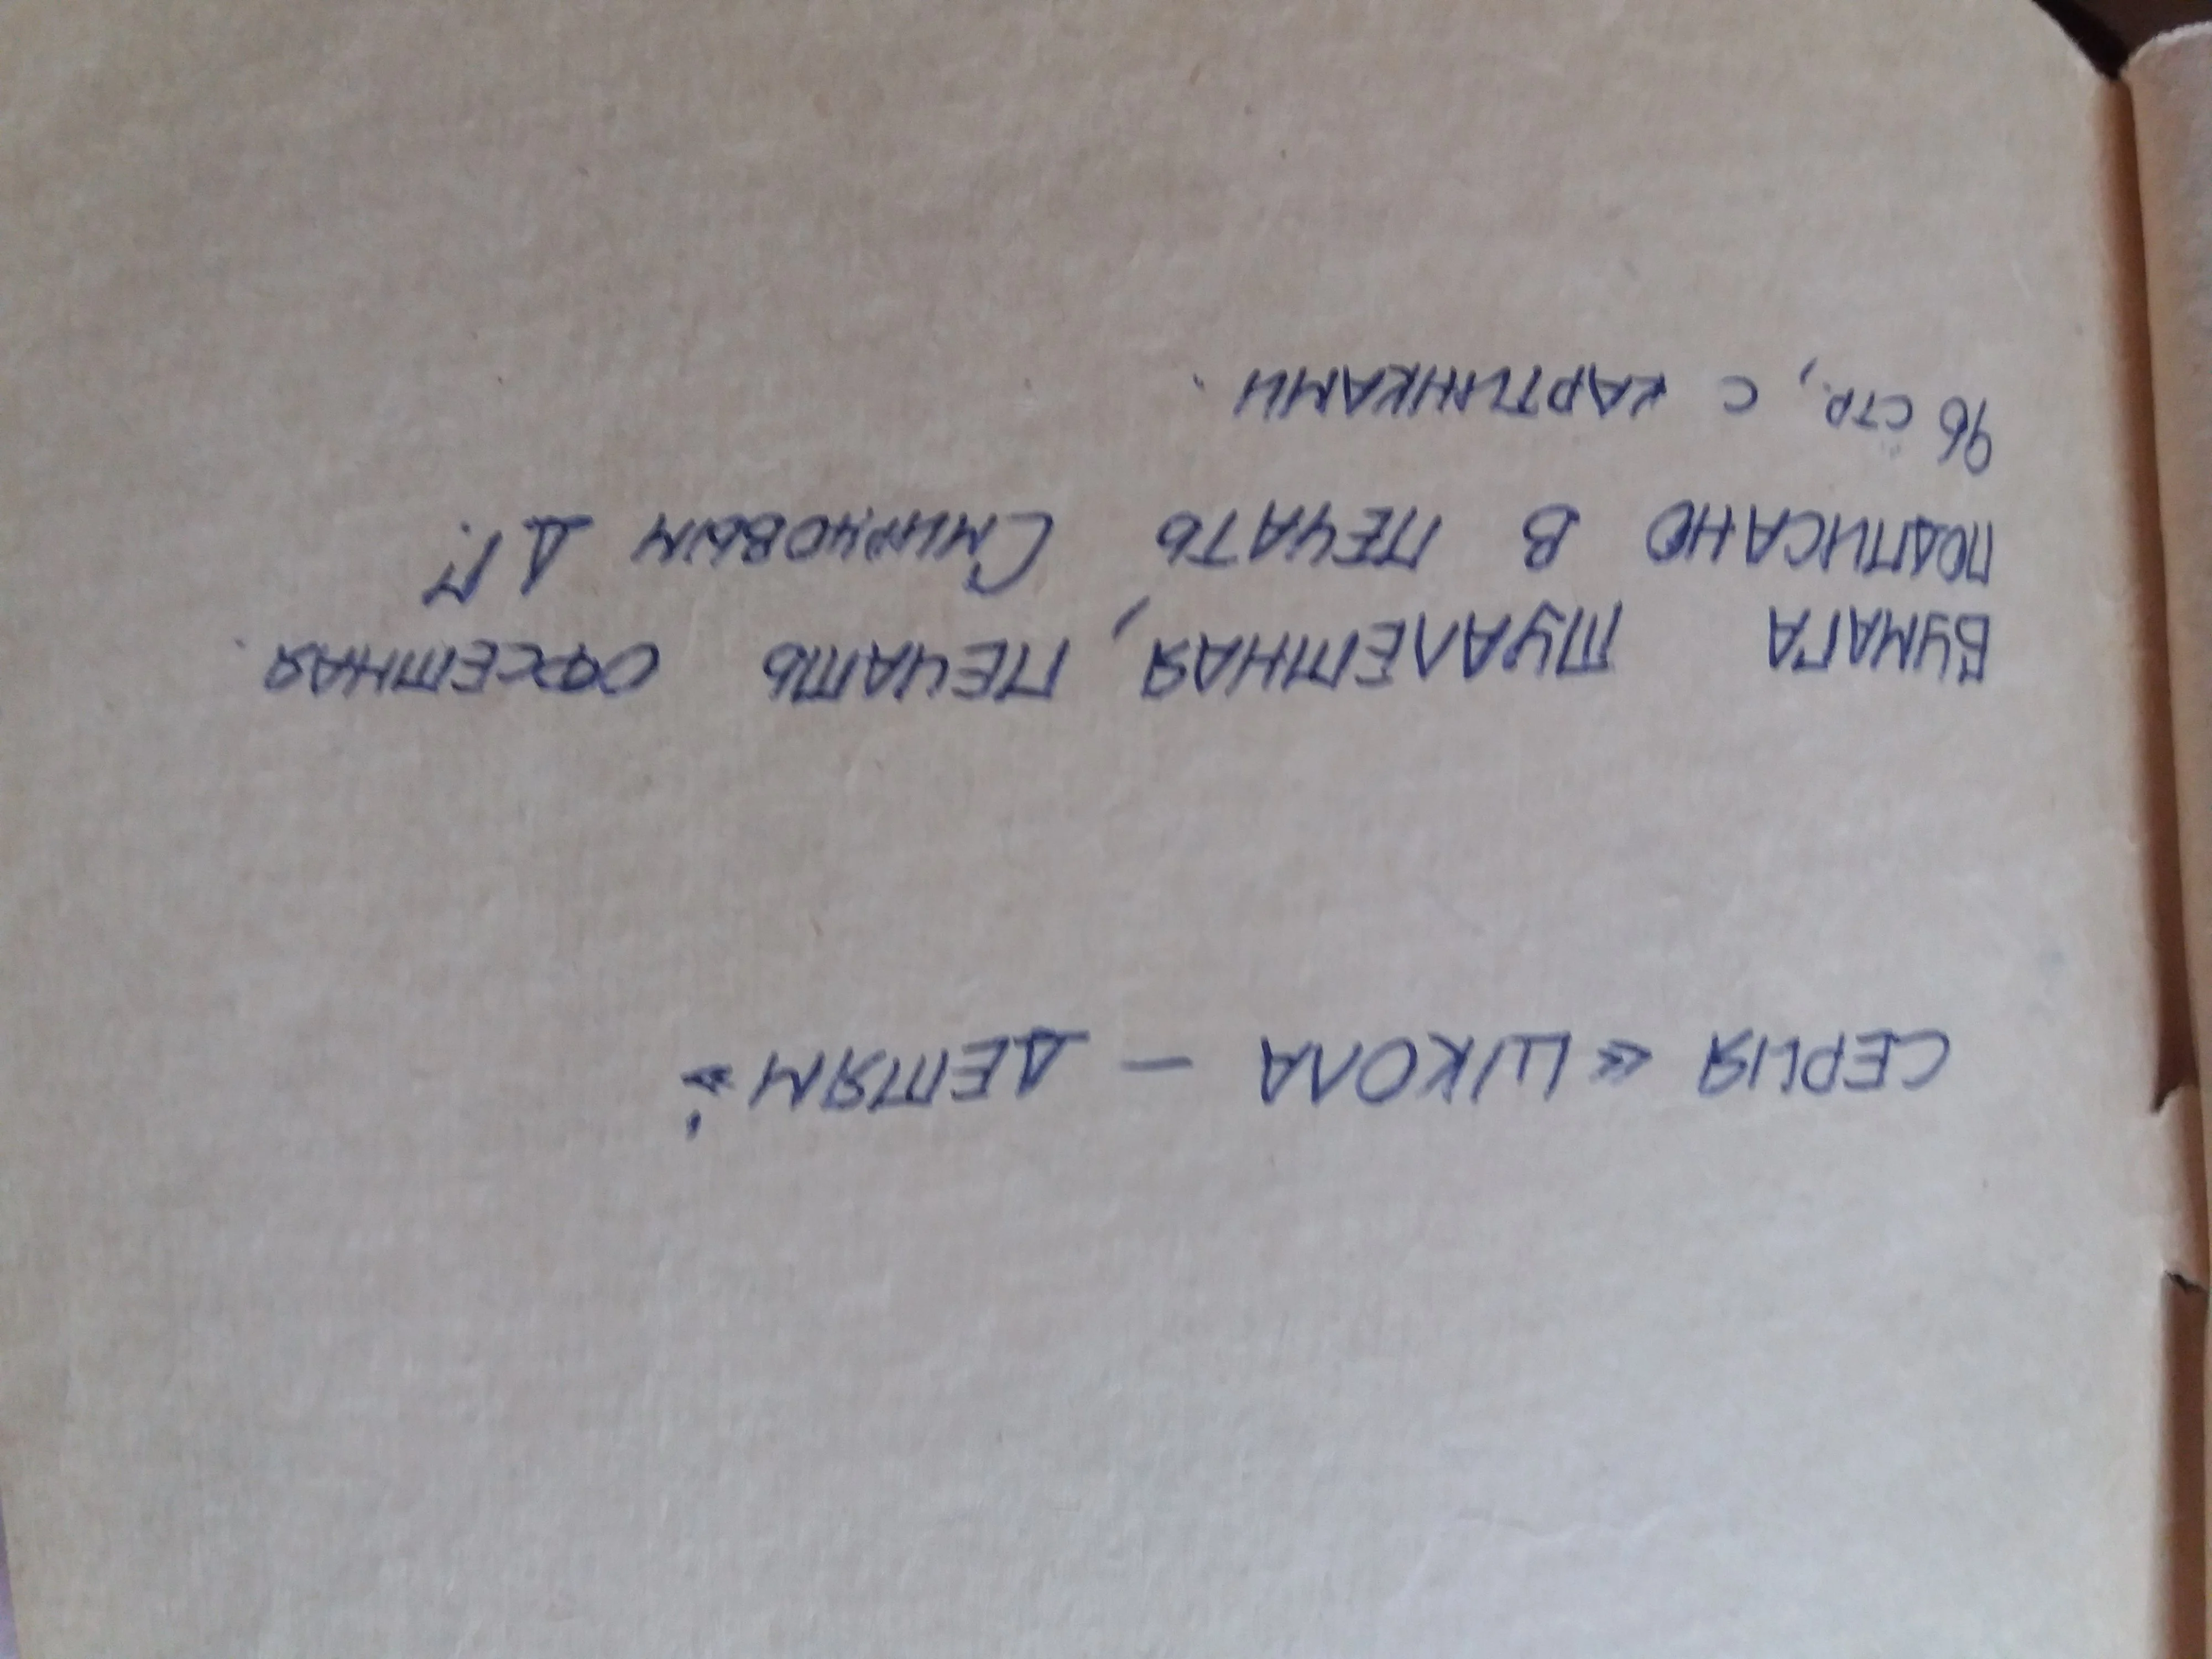 СЕРИЯ «ШКОЛА — ДЕТЯМ».
БУМАГА ТУАЛЕТНАЯ, ПЕЧАТЬ ОФСЕТНАЯ.
ПОДПИСАНО В ПЕЧАТЬ СМИРНОВЫМ Д.Г.
96 СТР., С КАРТИНКАМИ.